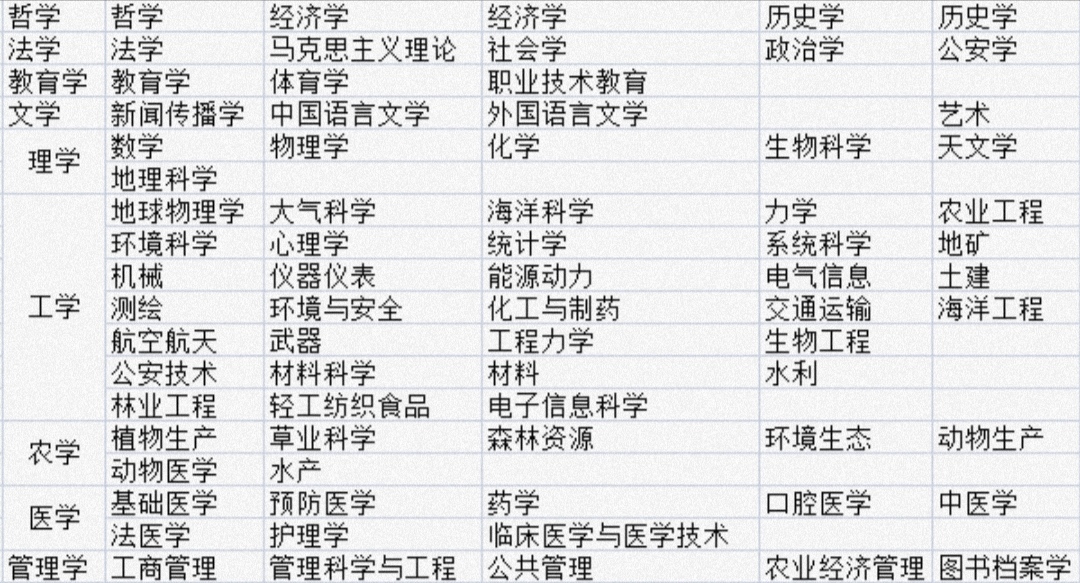 哲学 哲学 经济学 经济学 历史学 历史学
法学 法学 马克思主义理论 社会学 政治学 公安学
教育学 教育学 体育学 职业技术教育
文学 新闻传播学 中国语言文学 外国语言文学 艺术
理学 数学 物理学 化学 生物科学 天文学
地理科学
工学 地球物理学 大气科学 海洋科学 力学 农业工程
环境科学 心理学 统计学 系统科学 地矿
机械 仪器仪表 能源动力 电气信息 土建
测绘 环境与安全 化工与制药 交通运输 海洋工程
航空航天 武器 工程力学 生物工程
公安技术 材料科学 材料 水利
林业工程 轻工纺织食品 电子信息科学
农学 植物生产 草业科学 森林资源 环境生态 动物生产
动物医学 水产
医学 基础医学 预防医学 药学 口腔医学 中医学
法医学 护理学 临床医学与医学技术
管理学 工商管理 管理科学与工程 公共管理 农业经济管理 图书档案学